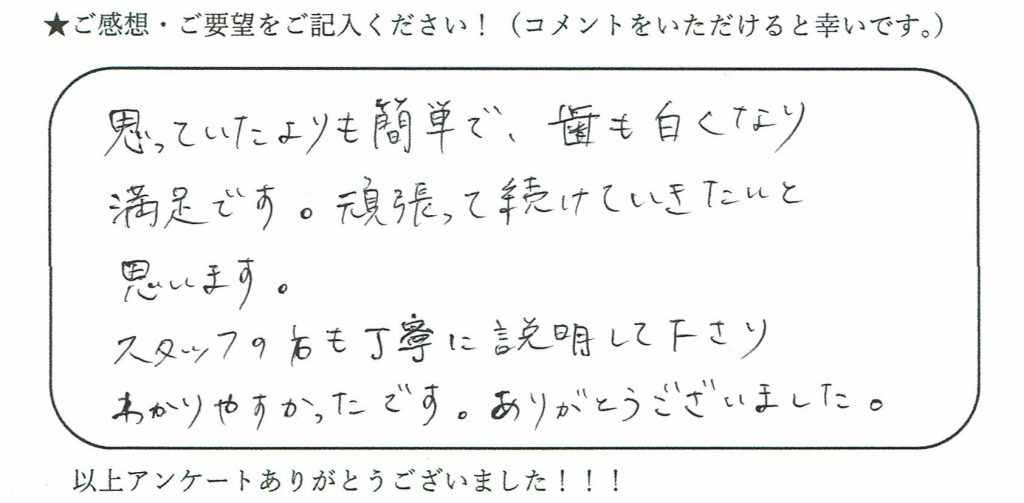 ★ご感想・ご要望をご記入ください！（コメントをいただけると幸いです。）
思っていたよりも簡単で、歯も白くなり
満足です。頑張って続けていきたいと
思います。
スタッフの方も丁寧に説明して下さり
わかりやすかったです。ありがとうございました。
以上アンケートありがとうございました！！！